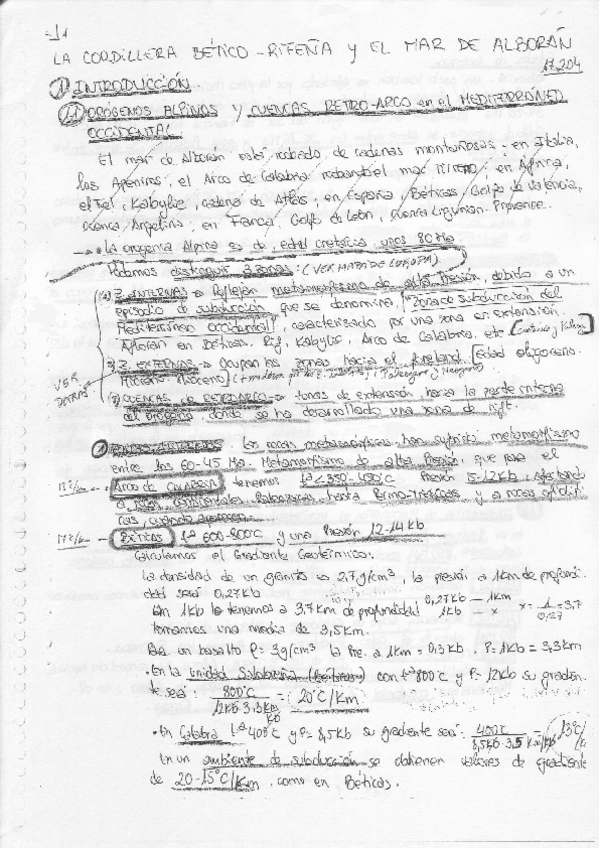 -1-
LA CORDILLERA BÉTICO-RIFEÑA Y EL MAR DE ALBORÁN
1) INTRODUCCIÓN.
1.1) ORÓGENOS ALPINOS Y CUENCAS RETRO-ARCO en el MEDITERRÁNEO
OCCIDENTAL.
El mar de Alborán está rodeado de cadenas montañosas: en Italia,
los Apeninos, el Arco de Calabria rodeando el mar Tirreno; en Africa,
el Tell, Kabylie, cadena de Atlas; en España, Béticas, Golfo de Valencia,
Cuenca Argelina; en Francia, Golfo de León, Cuenca Ligurian-Provence.
La orogenia Alpina es de edad cretácica unos 80 Ma.
Podemos distinguir 3 zonas: (VER MAPA DE
1) Z. INTERNAS → Reflejan metamorfismo de alta Presión, debido a un
episodio de subducción que se denomina "Zona de subducción del
Mediterráneo occidental", caracterizado por una zona en extensión.
Afloran en Béticas, Rif, Kabylie, Arco de Calabria, etc
2) Z. EXTERNAS → Ocupan las zonas hacia el foreland. Edad oligoceno
Mioceno
VER
DETRÁS
3) CUENCAS DE RETROARCO → zonas de extensión, hacia la parte interna
del orógeno, donde se ha desarrollado una zona de rift.
1) ZONAS INTERNAS. Las rocas metamórficas han sufrido metamorfismo
entre los 60-45 Ma. Metamorfismo de alta Presión, que para el
Arco de CALABRIA tenemos Tª < 350-450°C Presión afectando
a rocas continentales Paleozoicas hasta Permo-triásicas y a rocas ofioliti
cas, cuando aparecen.
Béticas Tª 600-800°C y una Presión 12-14 Kb
Calculamos el Gradiente Geotérmico:
La densidad de un granito es 2,7 g/cm³, la presión a 1km de profundi-
dad será 0,27Kb
0,27Kb — 1Km
Un 1Kb lo tenemos a 3,7 Km de profundidad 1Kb — x x = 1/0,27 = 3,7
tomamos una media de 3,5 Km.
Para un basalto ρ= 3g/cm³ la Pre. a 1Km = 0,3Kb. P= 1Kb = 3,3 Km
• En la Unidad Subbética (Béticas) con tª 800°C y P= 12Kb su gradien-
te será: 800°C / 12Kb·3,3Km/Kb = 20°C/Km.
• En Calabria tª 400°C y P= 8,5Kb su gradiente será: 400°C / 8,5Kb·3,5 Km/Kb = 13°C
En un ambiente de subducción se obtienen valores de gradiente
de 20-15°C/Km, como en Béticas.